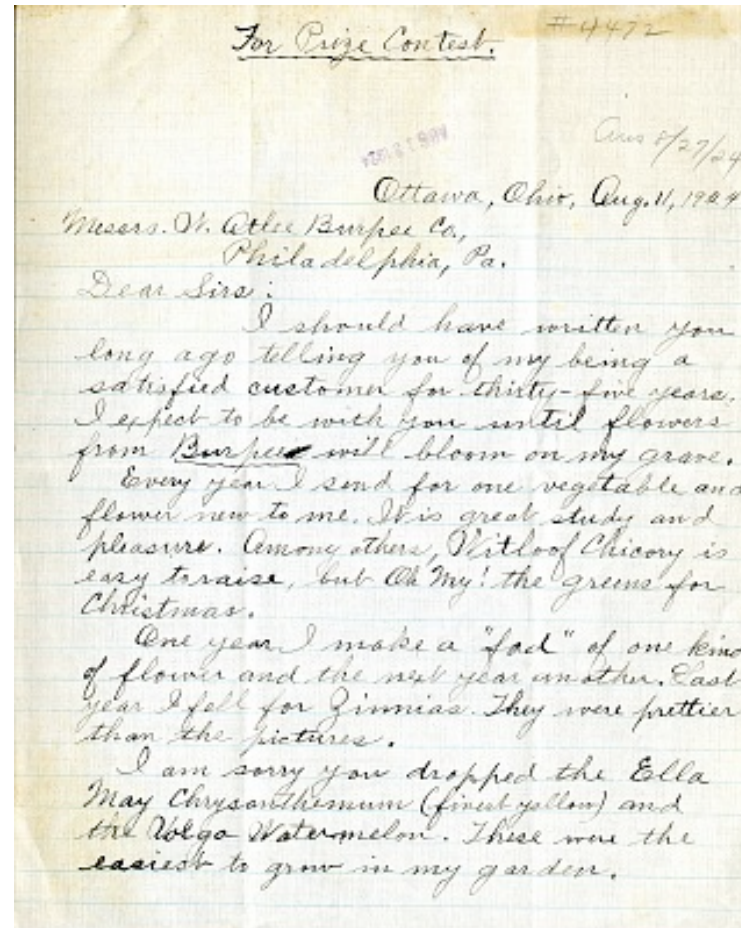 For Prize Contest.
#4472
AUG 13 1924
Ans 8/27/24
Ottawa, Ohio, Aug. 11, 1924
Messrs. W. Atlee Burpee Co,
Philadelphia, Pa.
Dear Sirs:
I should have written you
long ago telling you of my being a
satisfied customer for thirty-five years.
I expect to be with you until flowers
from Burpee will bloom on my grave.
Every year I send for one vegetable and
flower new to me. It is great study and
pleasure. Among others, Witloof Chicory is
easy to raise, but Oh My! the greens for
Christmas.
One year I make a "fad" of one kind
of flower and the next year another. Last
year I fell for Zinnias. They were prettier
than the pictures.
I am sorry you dropped the Ella
May Chrysanthemum (finest yellow) and
the Volga Watermelon. These were the
easiest to grow in my garden.